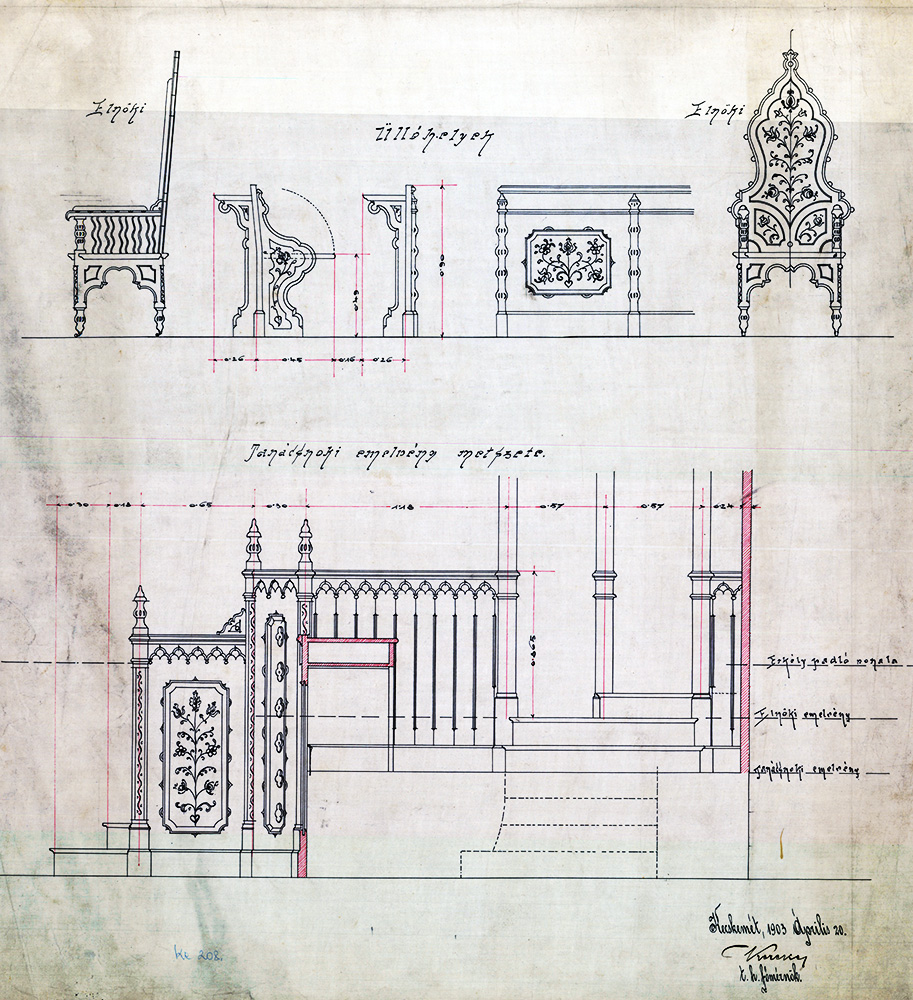 Elnöki
Ülőhelyek
Elnöki
0·90
0·49
0·26 0·45 0·16 0·26
Tanácsnoki emelvény metszete.
0·30 0·18 0·65 0·30 1·18 0·57 0·57 0·24
Erkély padló vonala
Elnöki emelvény
Tanácsnoki emelvény
Kecskemét, 1903 Április 20.
t. h. főmérnök.
Ke 208.